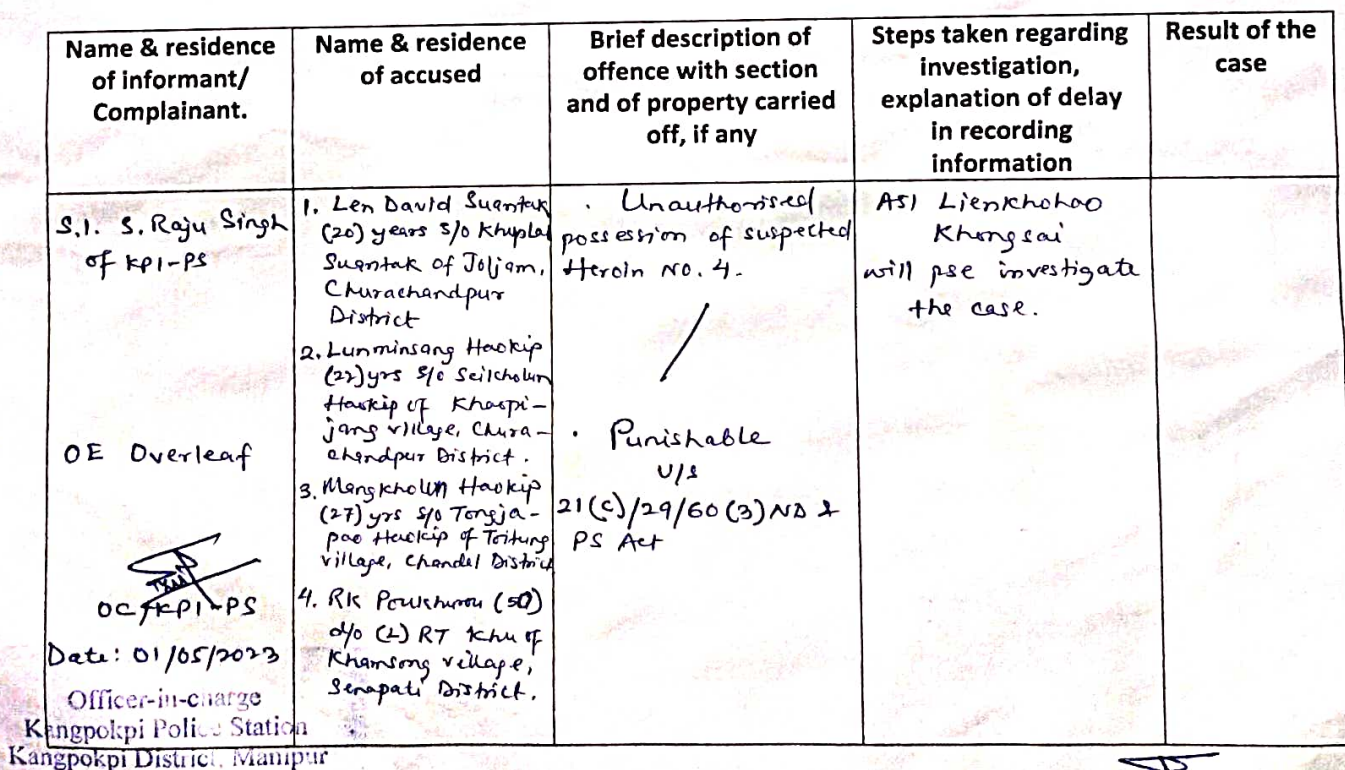 Name & residence
of informant/
Complainant.
Name & residence
of accused
Brief description of
offence with section
and of property carried
off, if any
Steps taken regarding
investigation,
explanation of delay
in recording
information
Result of the
case
S.I. S. Raju Singh
of KPI-PS
OE Overleaf
OC/KPI-PS
Date: 01/05/2023
Officer-in-charge
Kangpokpi Police Station
Kangpokpi District, Manipur
1. Len David Suantak
(20) years S/o Khuplal
Suantak of Joljam,
Churachandpur
District
2. Lunminsang Haokip
(22) yrs S/o Seilcholun
Haokip of Khaopi-
jang village, Chura-
chandpur District.
3. Mangkholun Haokip
(27) yrs S/o Tongja-
pao Haokip of Toitung
village, Chandel District
4. RK (50)
d/o (L) RT Khu of
Khamsong village,
Senapati District.
· Unauthorised
possession of suspected
Heroin No. 4.
· Punishable
U/s
21(c)/29/60(3) ND &
PS Act
ASI Lienkhohao
Khongsai
will pse investigate
the case.